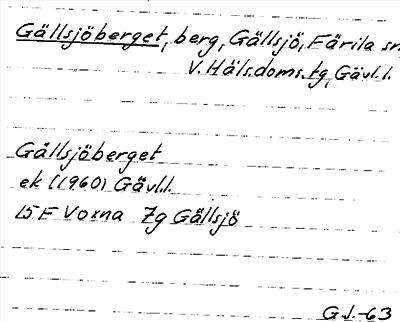 Gällsjöberget, berg, Gällsjö, Färila sn
V. Häls. doms. tg, Gävl. l.
Gällsjöberget
ek (1960) Gävl.l.
15 F Voxna 7g Gällsjö
G.J.-63